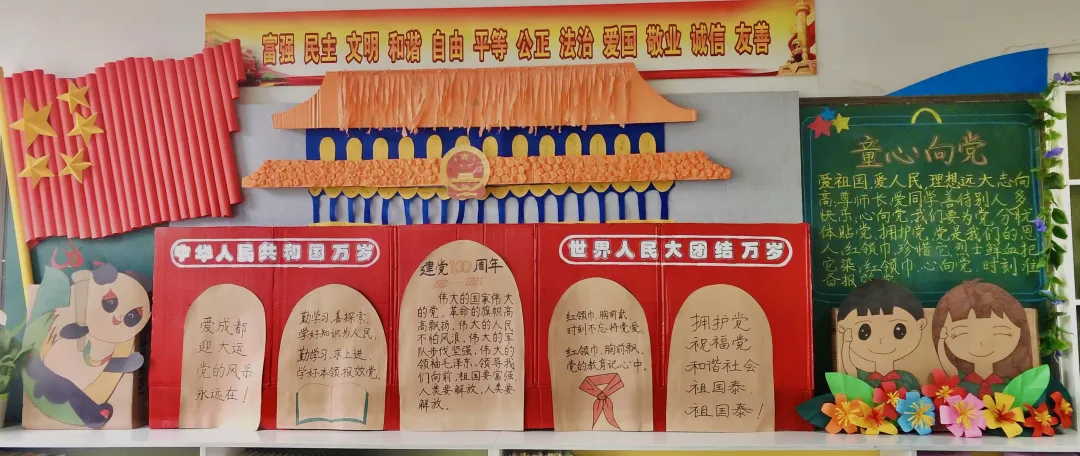 富强 民主 文明 和谐 自由 平等 公正 法治 爱国 敬业 诚信 友善
中华人民共和国万岁
世界人民大团结万岁
爱成都
迎大运
党的风采
永远在！
勤学习,喜探索,
学好知识为人民,
勤学习,求上进,
学好本领报效党。
建党100周年
1921—2021
伟大的国家伟大
的党，革命的旗帜高
高飘扬，伟大的人民
不怕风浪，伟大的军
队步伐坚强，伟大的
领袖毛泽东，领导我
们向前，祖国要富强
人类要解放，人类要
解放。
红领巾,胸前戴,
时刻不忘将党爱。
红领巾,胸前飘,
党的教育记心中。
拥护党
祝福党
和谐社会
祖国泰,
祖国泰！
童心向党
爱祖国,爱人民,理想远大志向
高,尊师长,爱同学,善待别人多
快乐,心向党,我们要为党分忧
体贴党,拥护党,党是我们的恩
人,红领巾,珍惜它,烈士鲜血把
它染,红领巾,心向党,时刻准
备报